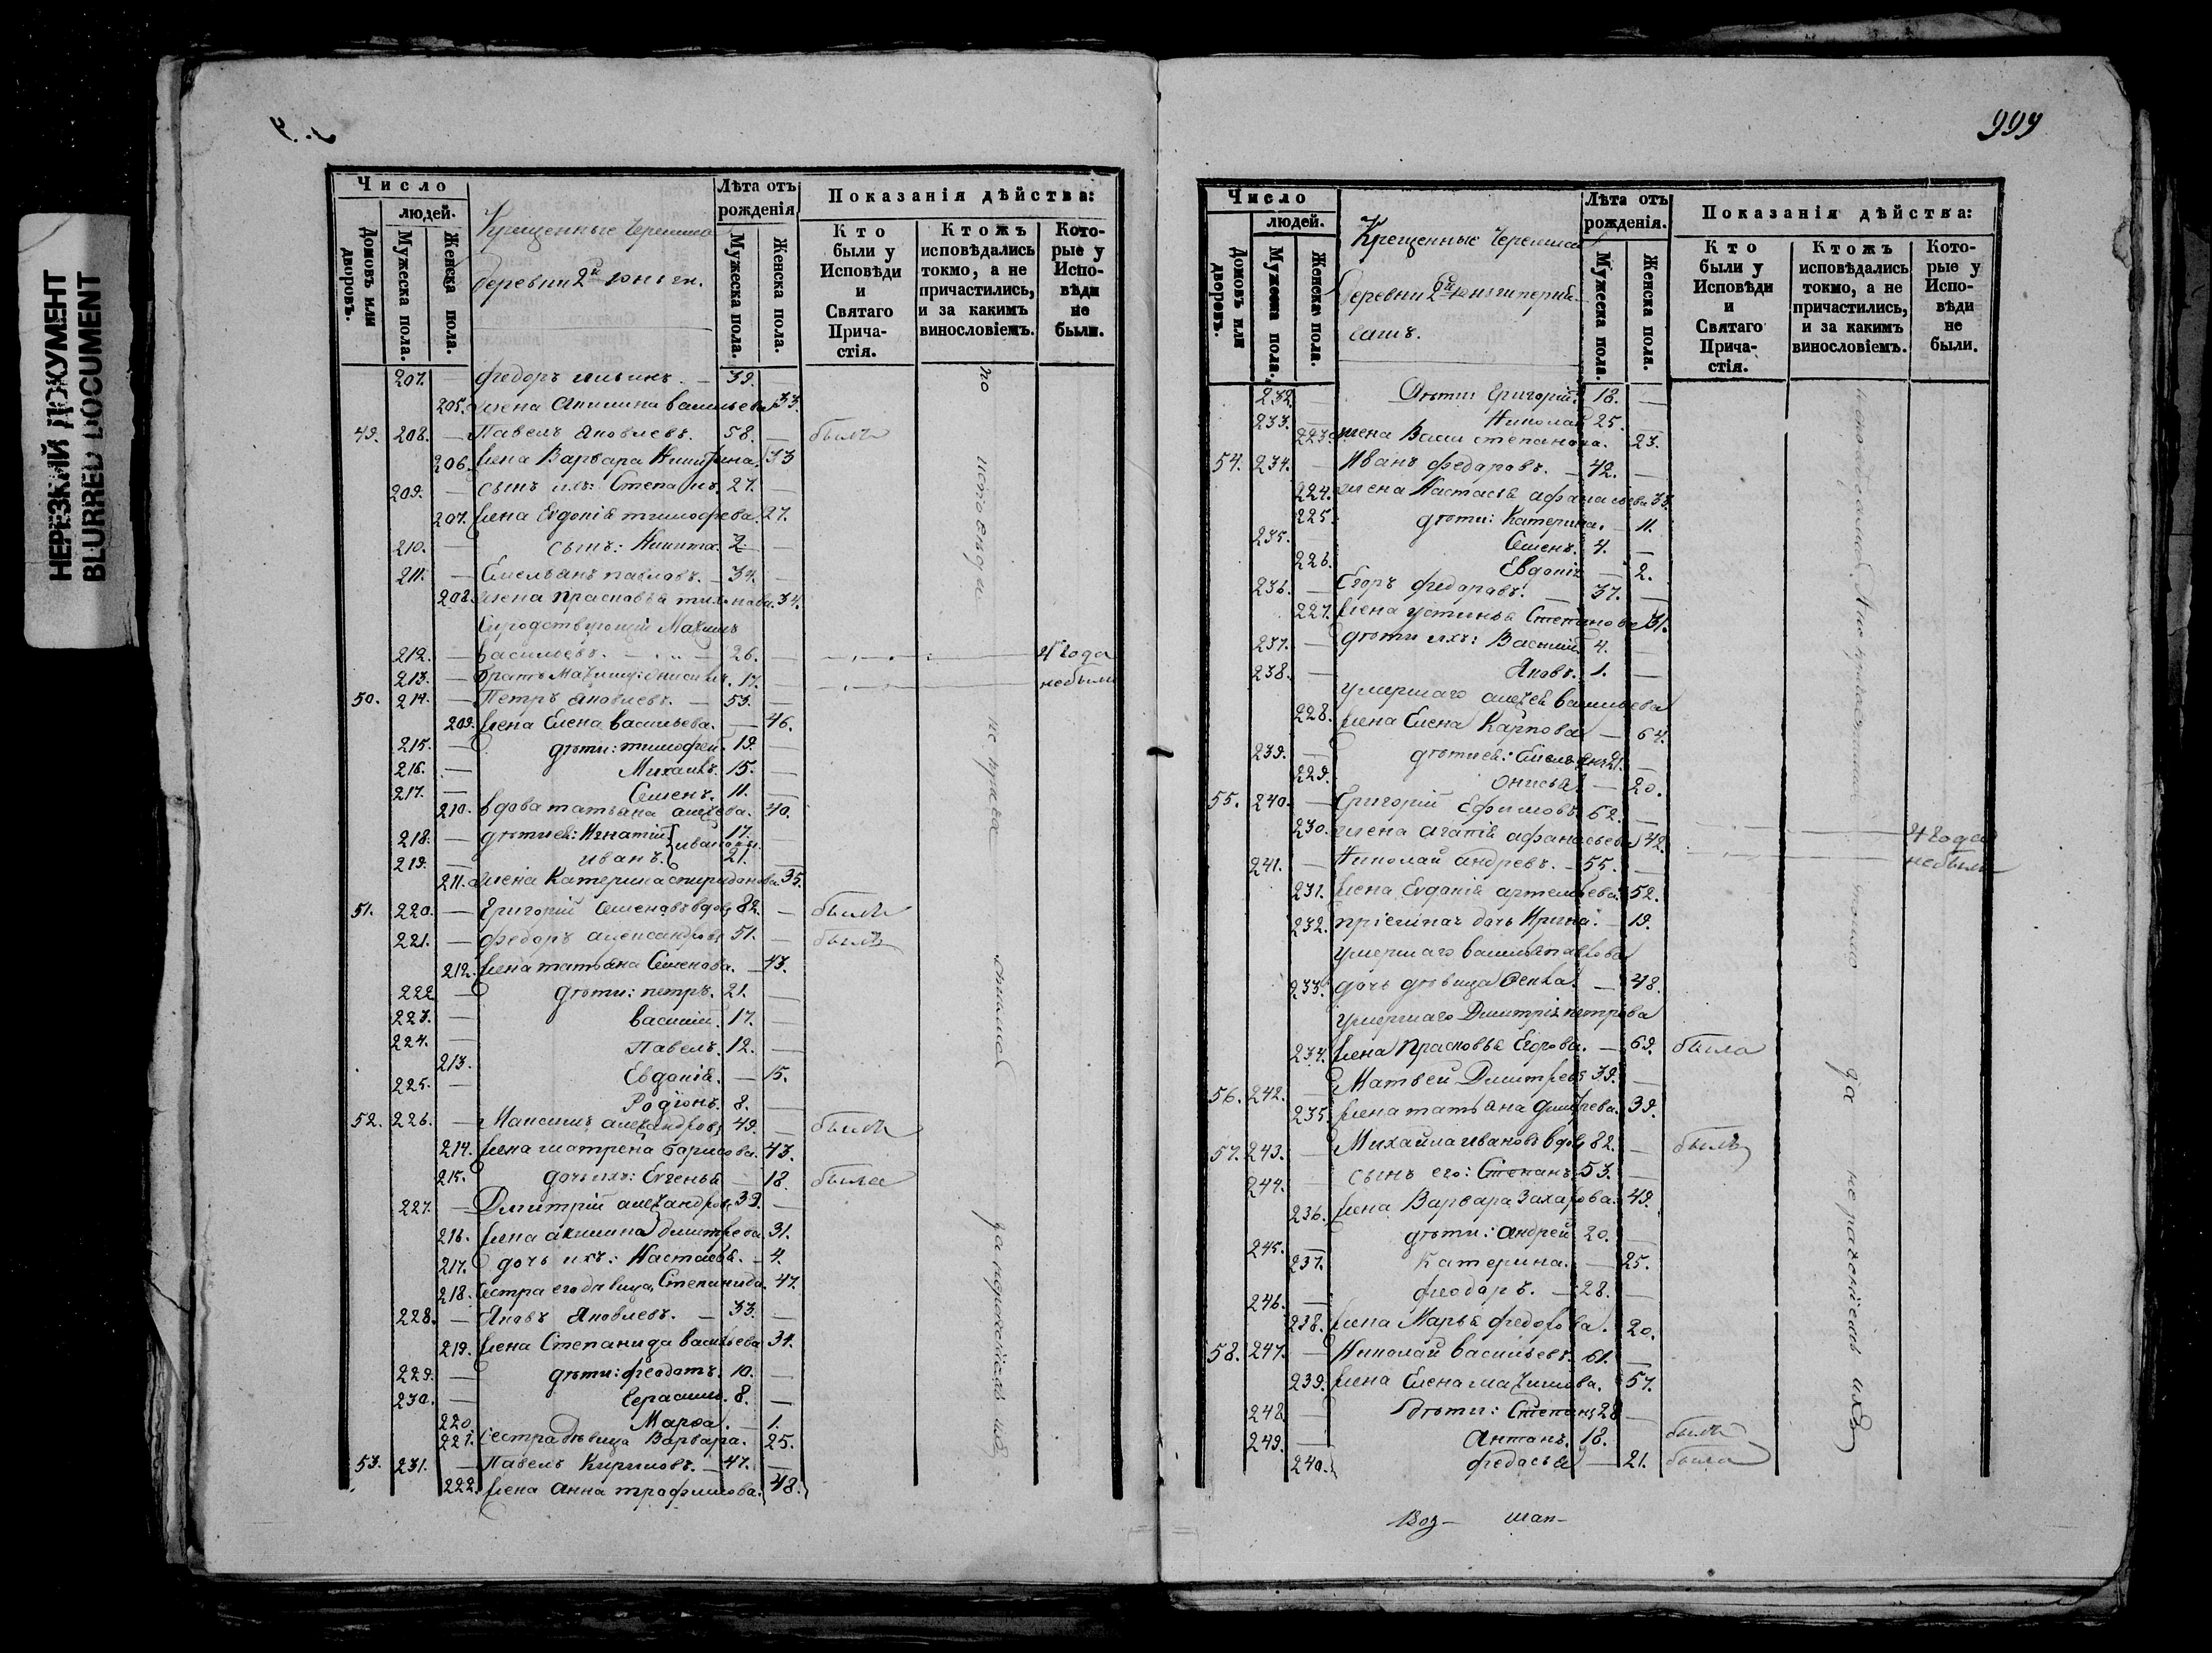 НЕРЕЗКИЙ ДОКУМЕНТ
BLURRED DOCUMENT
Число
людей.
Домовъ или дворовъ.
Мужеска пола.
Женска пола.
Крещенные Черемиса
деревни 2й Юнъги.
Лѣта отъ рожденія
Мужеска пола.
Женска пола.
Показанія дѣйства:
Кто были у Исповѣди и Святаго Прича-стія.
Ктожъ исповѣдались токмо, а не причастились, и за какимъ винословіемъ.
Кото-рые у Испо-вѣди не были.
207. — федоръ ильинъ. — 39. —
205. жена Акилина васильева 33.
49. 208. — Павелъ Яковлевъ. 58. — былъ
206. жена Варвара 53
209. — сынъ ихъ: Степанъ. 27. —
207. жена Евдокія тимофеева. 27.
210. — сынъ: Никита. 2. —
211. — Емельянъ павловъ. — 34. —
208. жена прасковья тихонова. 34.
Сиродствующій Максимъ
212. — васильевъ. — 26. — 4 года
213. — братъ 17. — небыли
50. 214. — Петръ Яковлевъ. — 53. —
209. жена Елена васильева. — 46.
215. — дѣти: тимофей. 19. —
216. — Михаилъ. 15. —
217. — Семенъ. 11. —
210. вдова татьяна 40.
218. — дѣти ея: Игнатій 17. —
219. — иванъ. ивановы. 21. —
211. жена Катерина спиридонова. 35.
51. 220. — Григорій Семеновъ вдовъ 82. — былъ
221. — федоръ александровъ 51. — былъ
212. жена татьяна Семенова. — 43.
222 — дѣти: петръ. 21. —
223. — василій. 17. —
224. — Павелъ. 12. —
213. Евдокія. — 15.
225. — Родіонъ. 8. —
52. 226. — Максимъ александровъ 49. — былъ
214. жена матрена борисова. 43.
215. дочь ихъ: Евгенья — 18. была
227. — Димитрій александровъ 39. —
216. жена акилина димитрева 31.
217. дочь ихъ: Настасья. — 4.
218. сестра его дѣвица Степанида. 47.
228. — Яковъ Яковлевъ. — 33. —
219. жена Степанида васильева 34.
229. — дѣти: феодотъ. 10. —
230. — Герасимъ. 8. —
220. Марѳа. — 1.
221. сестра дѣвица Варвара. 25.
53. 231. — Павелъ Кириловъ. — 47. —
222. жена анна трофимова. 48.
по исповѣди не прича стились за нераченіемъ ихъ
999
Число
людей.
Домовъ или дворовъ.
Мужеска пола.
Женска пола.
Крещенные Черемиса
деревни 2й Юнги
Лѣта отъ рожденія.
Мужеска пола.
Женска пола.
Показанія дѣйства:
Кто были у Исповѣди и Святаго Прича-стія.
Ктожъ исповѣдались токмо, а не причастились, и за какимъ винословіемъ.
Кото-рые у Испо-вѣди не были.
232. — Дѣти: Григорій. 18. —
233. — Николай 25. —
223. жена Васи степанова. 23.
54. 234. — Иванъ федоровъ. — 42. —
224. жена Настасья афанасьева 33.
225. дѣти: Катерина. — 11.
235. — Семенъ. 4. —
226. Евдокія — 2.
236. — Егоръ федоровъ. — 37. —
227. жена устинья Степанова 31.
237. — дѣти ихъ: Василій 4. —
238. — Яковъ. 1. —
умершаго васильева
228. жена Елена Карпова — 64.
239. — дѣти ея: Емельянъ 21. —
229. Онисья — 20.
55. 240. — Григорій Ефимовъ 62. — 4 года
230. жена агапія афанасьева 42. небыли
241. — Николай андревъ. — 55. —
231. жена Евдокія артемьева. 52.
232. дочь Ирина. — 19.
умершаго василья павлова
233. дочь дѣвица — 48.
умершаго Димитрія петрова
234. жена прасковья Егорова. — 69. была
56. 242. — Матвей Димитревъ 39. —
235. жена татьяна 39.
57. 243. — Михайла ивановъ вдовъ 82. — былъ
244. — сынъ его: Степанъ. 53. —
236. жена Варвара Захарова. 49.
245. — дѣти: андрей 20. —
237. Катерина. — 25.
246. — феодоръ. — 28. —
238. жена Марья федорова. 20.
58. 247. — Николай васильевъ. 61. —
239. жена Елена максимова. 57.
248. — дѣти: Степанъ 28 —
249. — Антонъ. 18. — былъ
240. федосья — 21. была
исповѣдались а не причастились токмо за нераченіемъ ихъ